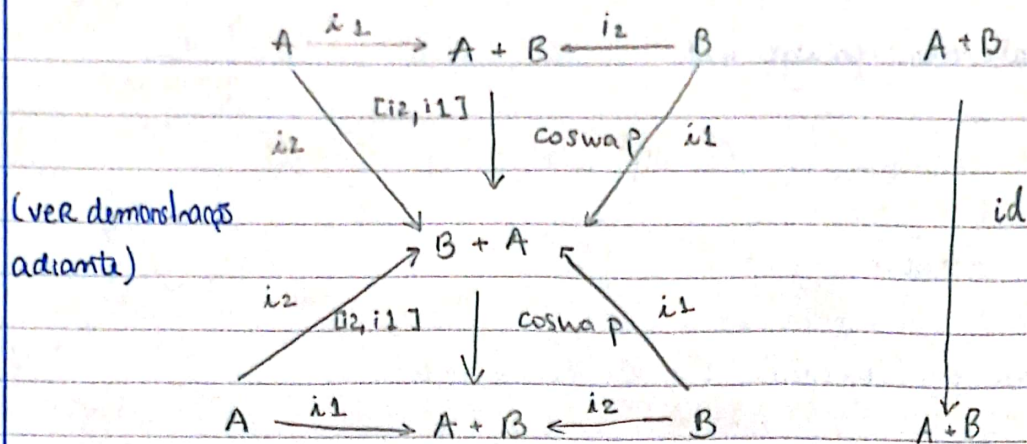 A i1 A + B i2 B A + B
[i2, i1]
i2 coswap i1
(ver demonstração id
adiante) B + A
i2 [i2, i1] coswap i1
A i1 A + B i2 B A + B